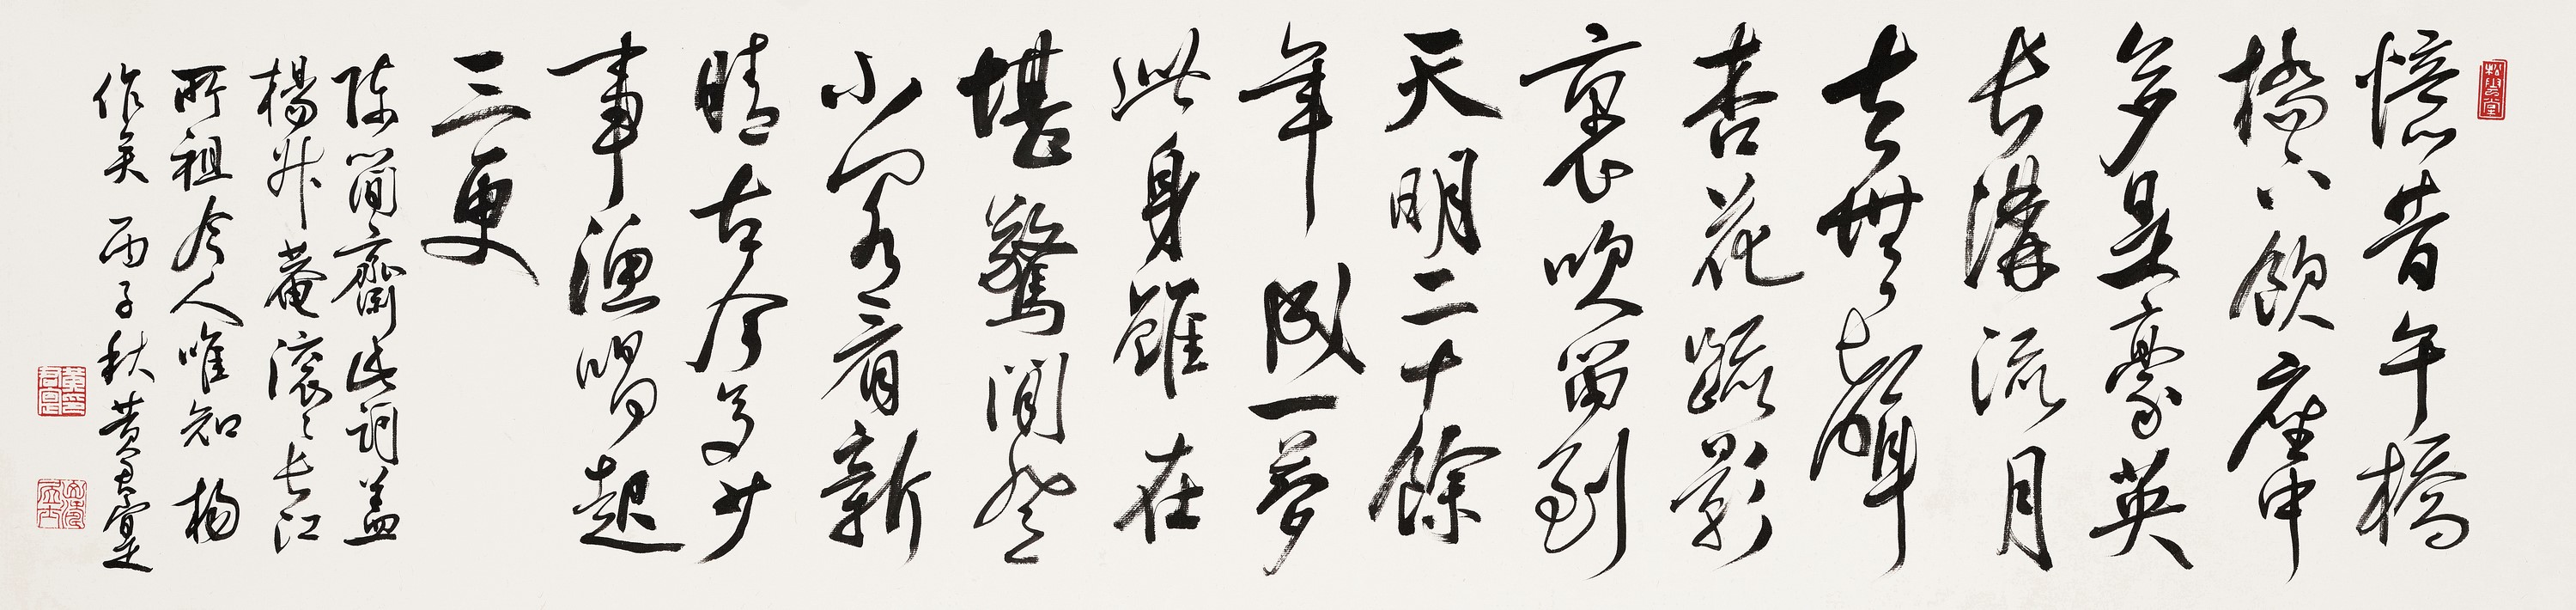 憶昔午橋
橋下飲座中
多是豪英
長溝流月
去無聲
杏花疏影
裏吹笛到
天明二十餘
年成一夢
此身雖在
堪驚閒登
小閣看新
晴古今多少
事漁唱起
三更
陳簡齋此詞蓋
楊升菴滾々長江
所祖今人唯知楊
作矣 丙子秋黃君寔